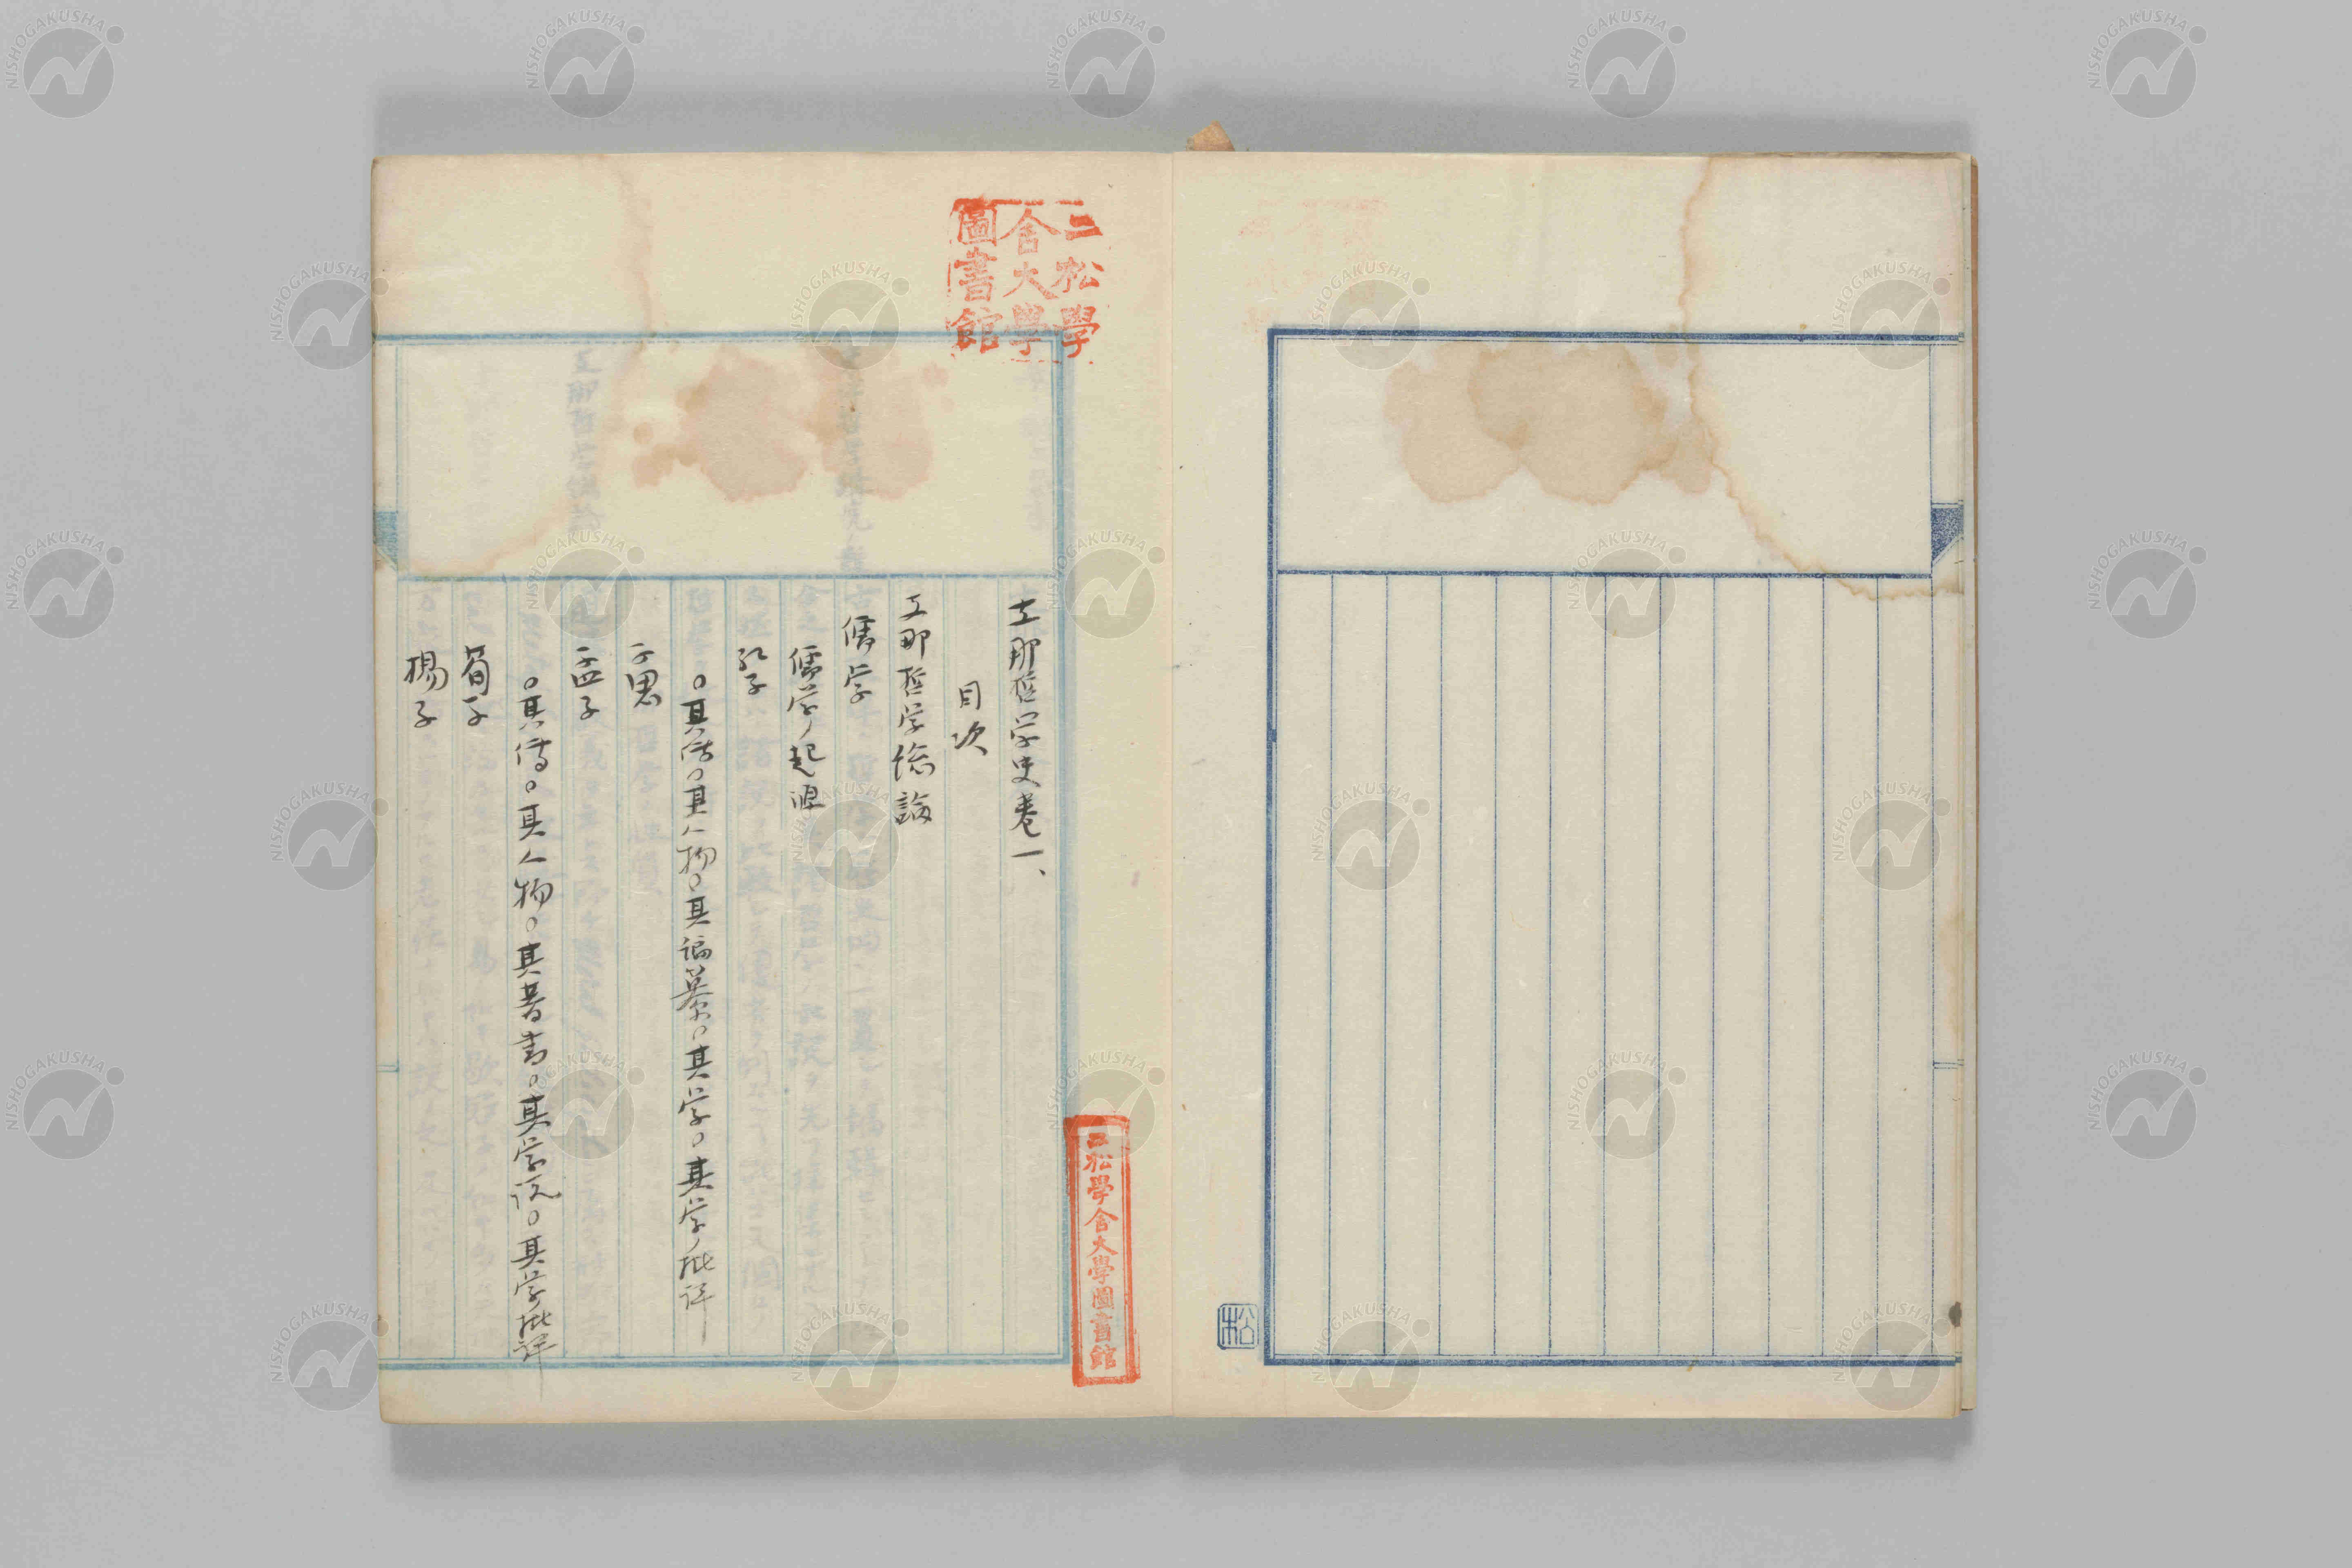 支那哲学史巻一、
目次
支那哲学総論
儒学
儒学ノ起源
孔子
○其傳○其人物○其編纂○其学○其学ノ批評
子思
孟子
○其傳○其人物○其著書○其学説○其学批評
荀子
楊子
二松學
舎大學
圖書館
二松學舎大學圖書館
松
NISHOGAKUSHA